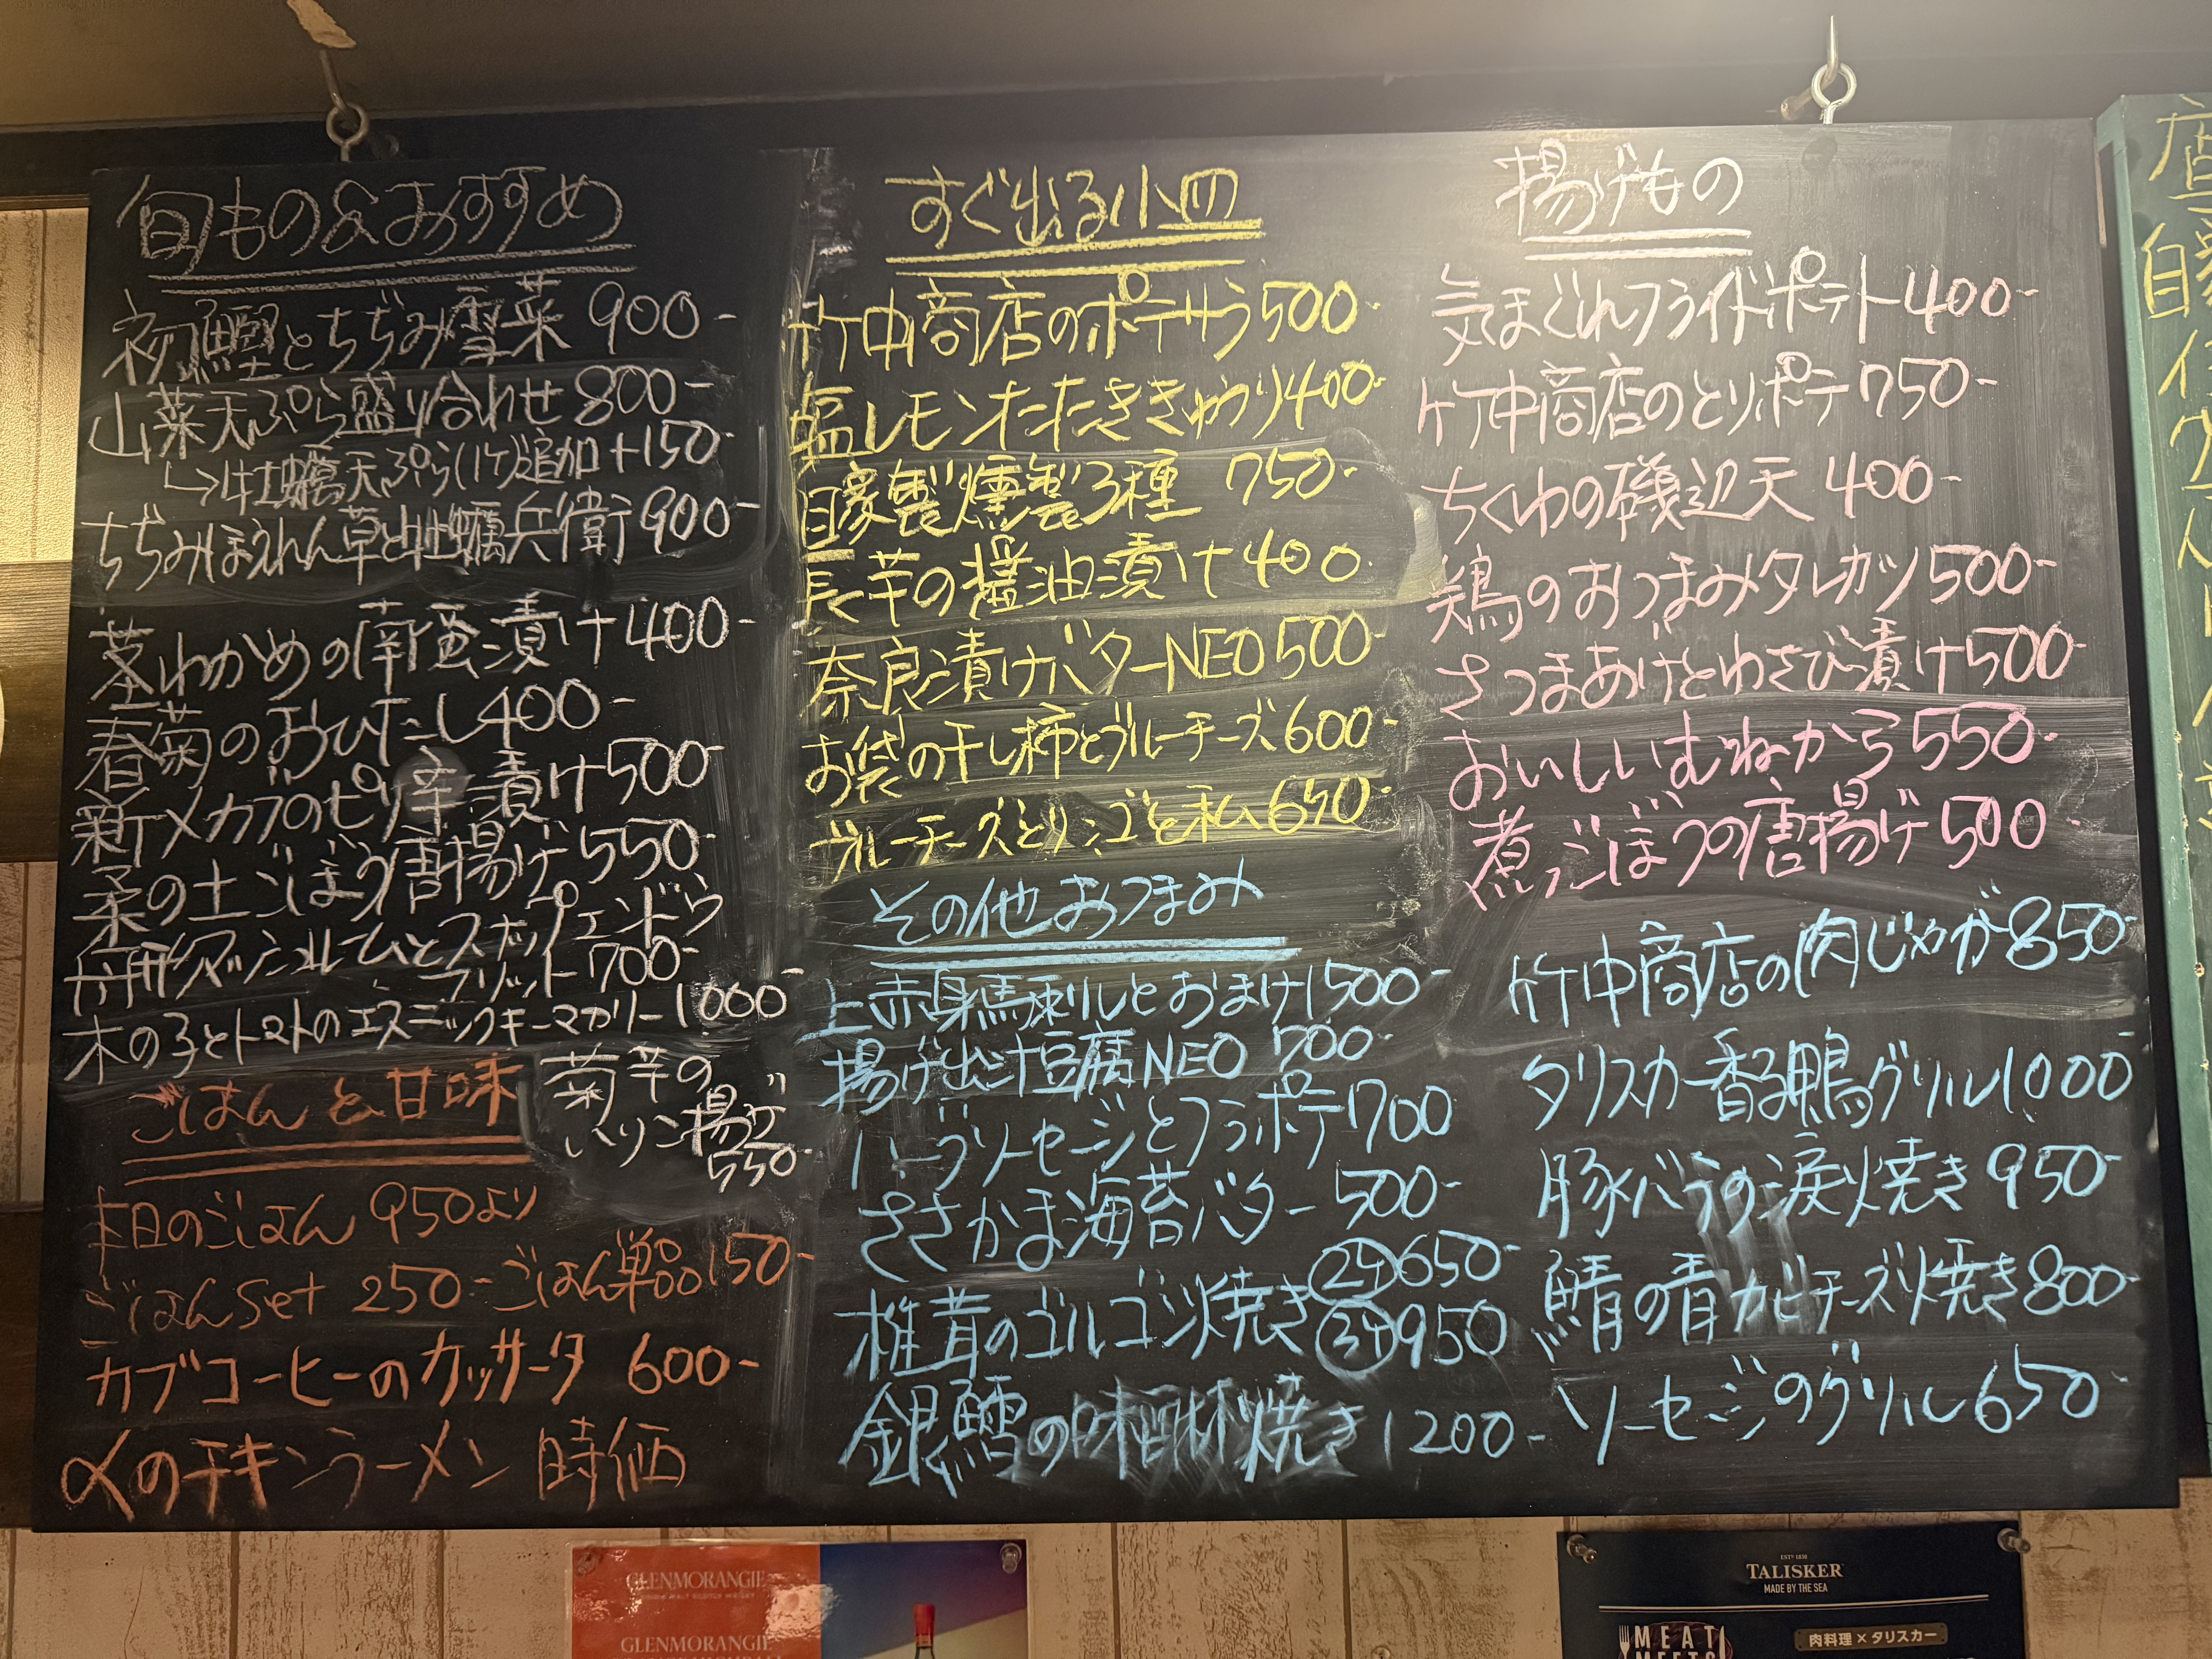 旬もの&おすすめ
初鰹とちぢみ雪菜 900-
山菜天ぷら盛り合わせ 800-
↳牡蠣天ぷら(1ケ)追加+150-
ちぢみほうれん草と牡蠣兵衛 900-
茎わかめの南蛮漬け 400-
春菊のおひたし 400-
新メカブのピリ辛漬け 500-
柔の土ごぼう唐揚げ 550-
舟形マッシュルームとスナップエンドウ
フリット 700-
木の子とトマトのエスニックキーマカリー 1000-
菊芋の
いりこ揚げ
550-
ごはんと甘味
本日のごはん 950より
ごはんSet 250-ごはん単品150-
カブコーヒーのカッサータ 600-
〆のチキンラーメン 時価
すぐ出る小皿
竹中商店のポテサラ 500-
塩レモンたたききゅうり 400-
自家製燻製3種 750-
長芋の醤油漬け 400
奈良漬けバターNEO 500-
お袋の干し柿とブルーチーズ 600-
ブルーチーズとりんごと私 650-
その他おつまみ
上赤身馬刺しとおまけ 1500-
揚げ出汁豆腐NEO 700-
ハーブソーセージとフラポテ 700
ささかま海苔バター 500-
椎茸のゴルゴンゾ焼き 2ケ 650-
3ケ 950
銀鱈の味噌粕焼き 1200-
揚げもの
気まぐれフライドポテト 400-
竹中商店のとりポテ 750-
ちくわの磯辺天 400-
鶏のおつまみタレカツ 500-
さつまあげとわさび漬け 500-
おいしいむねから 550-
煮ごぼうの唐揚げ 500
竹中商店の肉じゃが 850-
タリスカー香る鴨グリル 1000-
豚バラの涙焼き 950-
鯖の青カビチーズ焼き 800-
ソーセージのグリル 650
GLENMORANGIE
GLENMORANGIE
EST° 1830
TALISKER
MADE BY THE SEA
MEAT
MEETS
肉料理×タリスカー